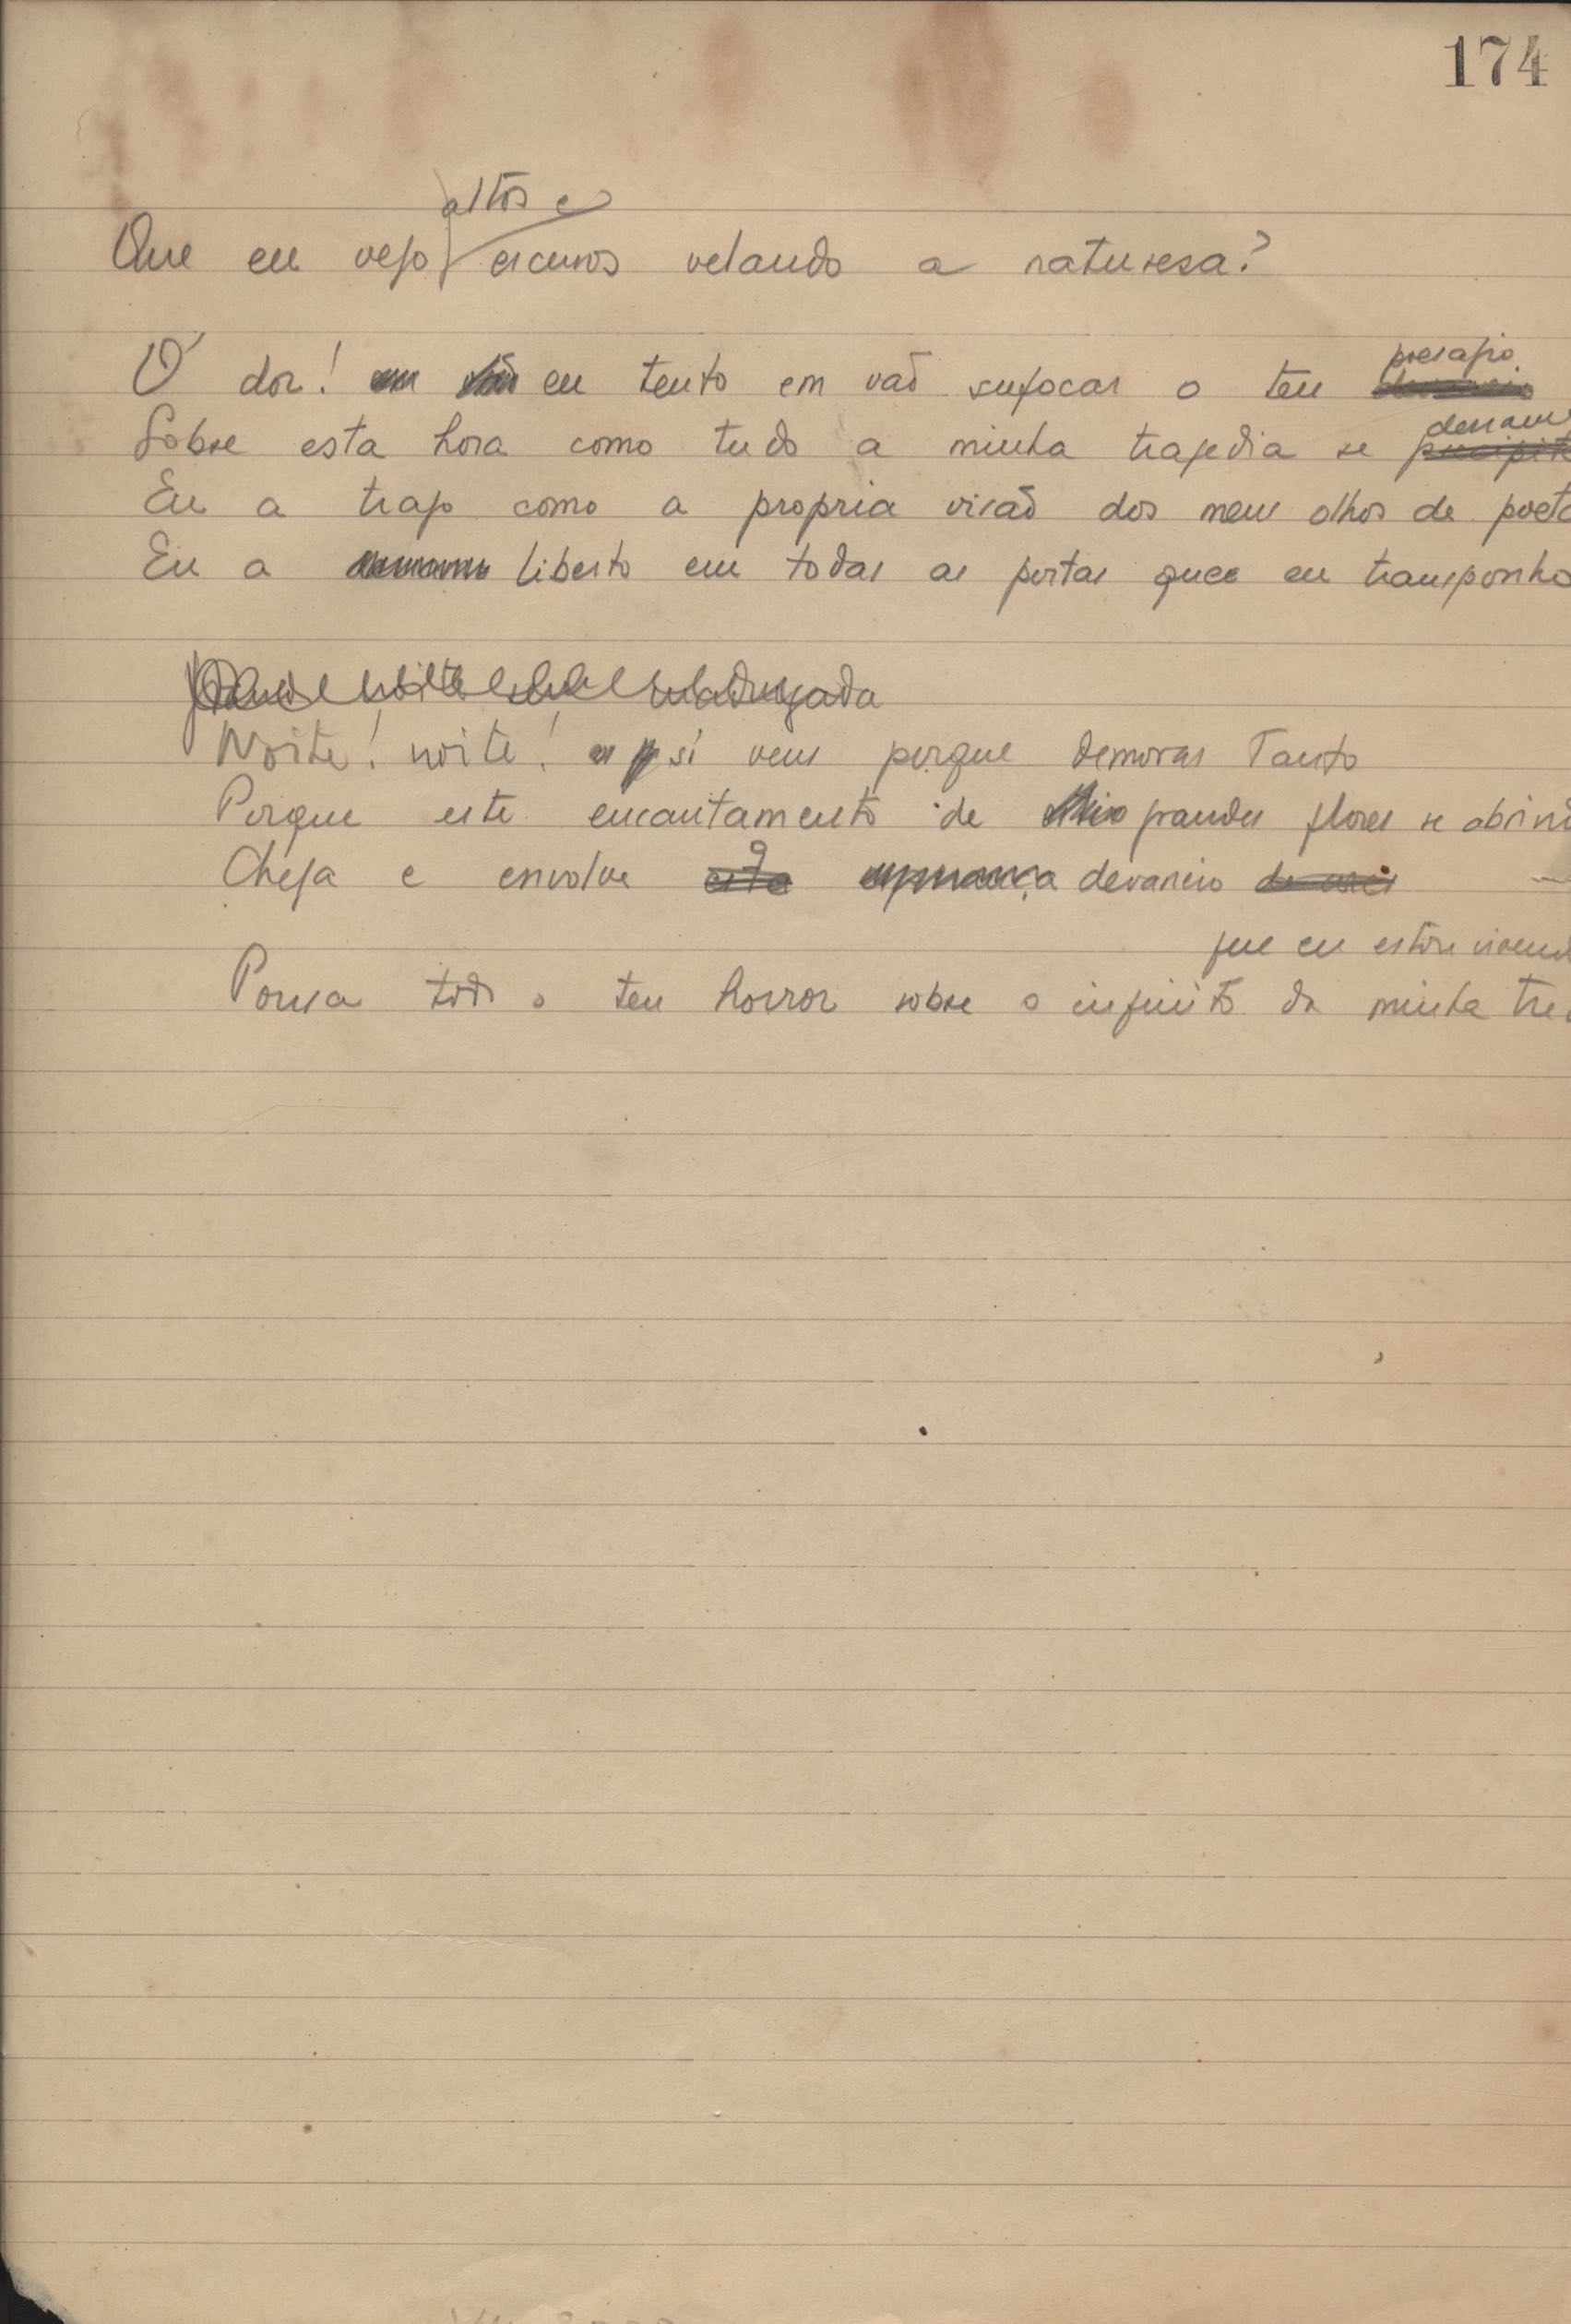 174
altos e
Que eu vejo escuros velando a naturesa?
presagio
Ó dor! em vão eu tento em vaõ sufocar o teu
derram
Sobre esta hora como tudo a minha tragedia se precipit
Eu a trago como a propria visaõ dos meus olhos de poeta
Eu a liberto em todas as portas que eu transponho
madrugada
Noite! noite! si vens porque demoras tanto
Porque este encantamento de grandes flores se abrin
Chega e envolve esta o devaneio
que eu estou viven
Pousa todo o teu horror sobre o infinito da minha tre